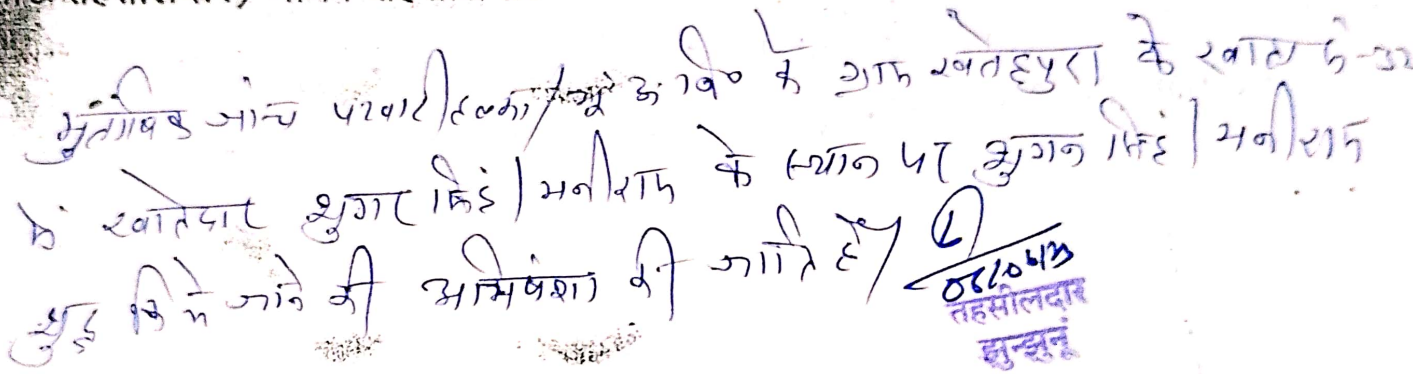 मुताबिक जांच पटवारी हल्का/भू अ नि० के ग्राम खतेहपुरा के खाता
में खातेदार भुगार सिंह/मनीराम के स्थान पर भुगान सिंह/मनीराम
शुद्ध किये जाने की अभिषंशा की जाति है/
तहसीलदार
झुन्झुनूं